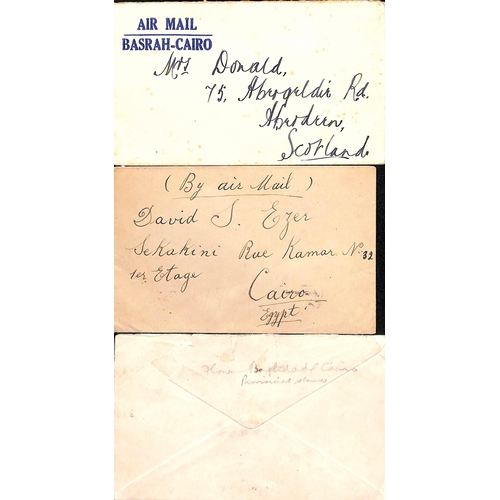 AIR MAIL
BASRAH-CAIRO
Mrs Donald,
75, Abergeldie Rd.
Aberdeen,
Scotland
(By air Mail)
David S. Ezer
Sekakini Rue Kamar No. 32
1er Etage
Cairo
Egypt
Flown Baghdad Cairo
Provisional